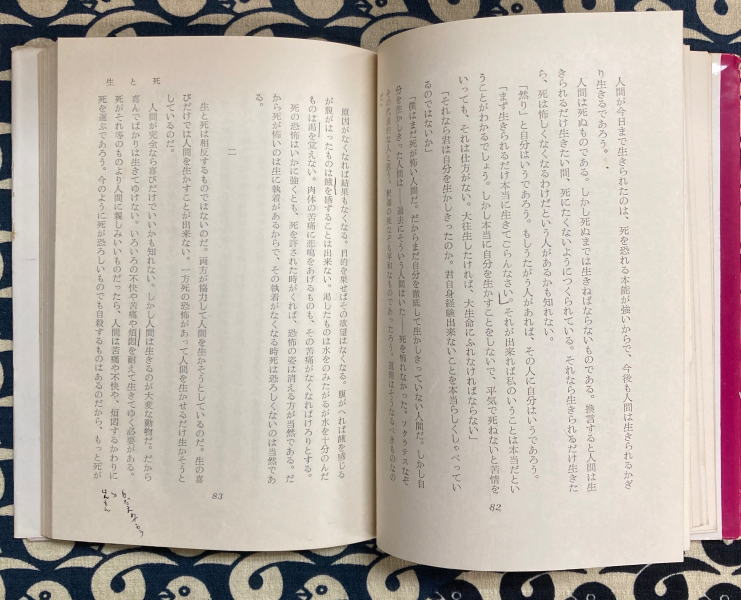 人間が今日まで生きられたのは、死を恐れる本能が強いからで、今後も人間は生きられるかぎ
り生きるであろう。
人間は死ぬものである。しかし死ぬまでは生きねばならないものである。換言すると人間は生
きられるだけ生きたい間、死にたくないようにつくられている。それなら生きられるだけ生きた
ら、死は怖しくなくなるわけだという人があるかも知れない。
「然り」と自分はいうであろう。もしうたがう人があれば、その人に自分はいうであろう。
「まず生きられるだけ本当に生きてごらんなさい」それが出来れば私のいうことは本当だとい
うことがわかるでしょう。しかし本当に自分を生かすことをしないで、平気で死ねないと苦情を
いっても、それは仕方がない。大往生したければ、大生命にふれなければならない」
「それなら君は自分を生かしきったのか。君自身経験出来ないことを本当らしくしゃべってい
るのではないか」
「僕はまだ死が怖い人間だ。だからまだ自分を徹底して生かしきっていない人間だ。しかし自
分を生かしきった人間は——過去にそういう人間はいた——死を怖れなかった。ソクラテスなぞ、
82
生と死
原因がなくなれば結果もなくなる。目的を果せばその欲望はなくなる。腹がへれば餓を感じる
が腹がはったものは餓を感ずることは出来ない。渇したものは水をのみたがるが水を十分のんだ
ものは渇を覚えない。肉体の苦痛に悲鳴をあげるものも、その苦痛がなくなればけろりとする。
死の恐怖はいかに強くとも、死を許された時がくれば、恐怖の姿は消える方が当然である。だ
から死が怖いのは生に執着があるからで、その執着がなくなる時死は恐ろしくないのは当然であ
る。
二
生と死は相反するものではないのだ。両方が協力して人間を生かそうとしているのだ。生の喜
びだけでは人間を生かすことが出来ない。一方死の恐怖があって人間を生かせるだけ生かそうと
しているのだ。
人間が完全なら喜びだけでいいかも知れない。しかし人間は生きるのが大変な動物だ。だから
喜んでばかりは生きてゆけない。いろいろの不快や苦痛や煩悶を耐えて生きてゆく必要がある。
死がそれ等のものより人間に親しみいいものだったら、人間は苦痛や不快や、煩悶するかわりに
死を選ぶであろう。今のように死が恐ろしいものでも自殺するものはあるのだから、もっと死が
83